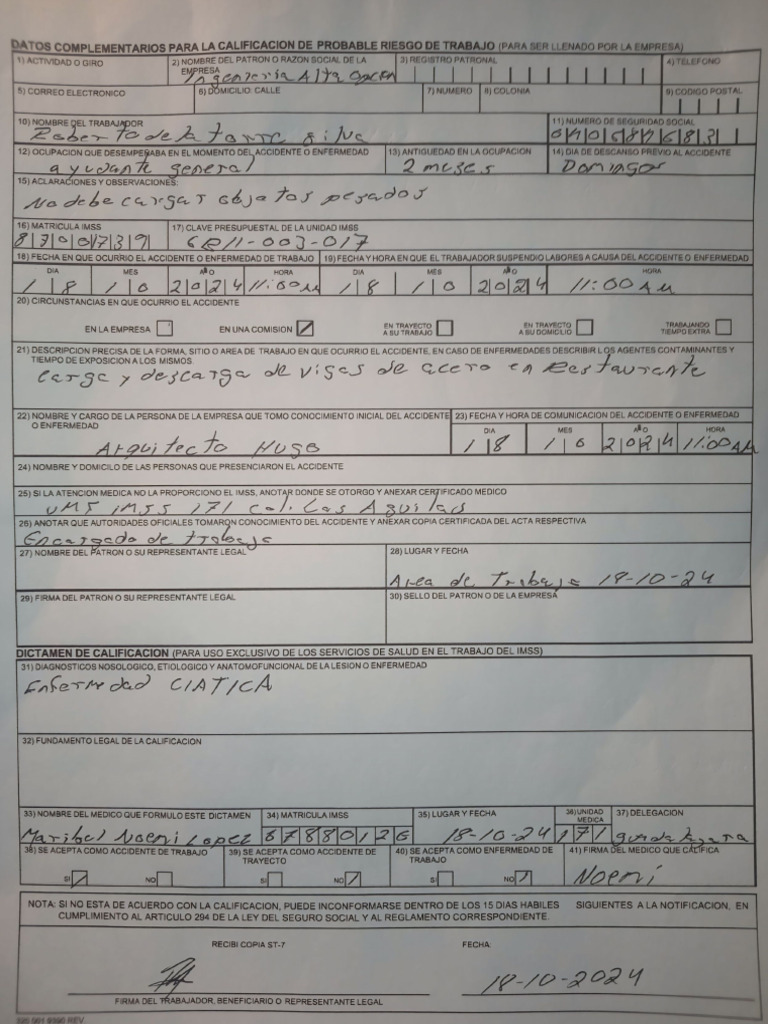 DATOS COMPLEMENTARIOS PARA LA CALIFICACION DE PROBABLE RIESGO DE TRABAJO (PARA SER LLENADO POR LA EMPRESA)
1) ACTIVIDAD O GIRO
2) NOMBRE DEL PATRON O RAZON SOCIAL DE LA EMPRESA
Ingenieria Alta
3) REGISTRO PATRONAL
4) TELEFONO
5) CORREO ELECTRONICO
6) DOMICILIO: CALLE
7) NUMERO
8) COLONIA
9) CODIGO POSTAL
10) NOMBRE DEL TRABAJADOR
Roberto de la torre silva
11) NUMERO DE SEGURIDAD SOCIAL
12) OCUPACION QUE DESEMPEÑABA EN EL MOMENTO DEL ACCIDENTE O ENFERMEDAD
ayudante general
13) ANTIGUEDAD EN LA OCUPACION
2 meses
14) DIA DE DESCANSO PREVIO AL ACCIDENTE
Domingos
15) ACLARACIONES Y OBSERVACIONES:
No debe cargar objetos pesados
16) MATRICULA IMSS
8 7 0 0 7 3 9
17) CLAVE PRESUPUESTAL DE LA UNIDAD IMSS
6R11-003-017
18) FECHA EN QUE OCURRIO EL ACCIDENTE O ENFERMEDAD DE TRABAJO
19) FECHA Y HORA EN QUE EL TRABAJADOR SUSPENDIO LABORES A CAUSA DEL ACCIDENTE O ENFERMEDAD
DIA MES AÑO HORA DIA MES AÑO HORA
1 8 1 0 2 0 2 4 11:00AM 1 8 1 0 2 0 2 4 11:00 AM
20) CIRCUNSTANCIAS EN QUE OCURRIO EL ACCIDENTE
EN LA EMPRESA EN UNA COMISION EN TRAYECTO A SU TRABAJO EN TRAYECTO A SU DOMICILIO TRABAJANDO TIEMPO EXTRA
21) DESCRIPCION PRECISA DE LA FORMA, SITIO O AREA DE TRABAJO EN QUE OCURRIO EL ACCIDENTE, EN CASO DE ENFERMEDADES DESCRIBIR LOS AGENTES CONTAMINANTES Y
TIEMPO DE EXPOSICION A LOS MISMOS
Carga y descarga de vigas de acero en Restaurante
22) NOMBRE Y CARGO DE LA PERSONA DE LA EMPRESA QUE TOMO CONOCIMIENTO INICIAL DEL ACCIDENTE O ENFERMEDAD
Arquitecto Hugo
23) FECHA Y HORA DE COMUNICACION DEL ACCIDENTE O ENFERMEDAD
DIA MES AÑO HORA
1 8 1 0 2 0 2 4 11:00AM
24) NOMBRE Y DOMICILIO DE LAS PERSONAS QUE PRESENCIARON EL ACCIDENTE
25) SI LA ATENCION MEDICA NO LA PROPORCIONO EL IMSS, ANOTAR DONDE SE OTORGO Y ANEXAR CERTIFICADO MEDICO
IMSS 171 Col. Las Aguilas
26) ANOTAR QUE AUTORIDADES OFICIALES TOMARON CONOCIMIENTO DEL ACCIDENTE Y ANEXAR COPIA CERTIFICADA DEL ACTA RESPECTIVA
Encargado de trabajo
27) NOMBRE DEL PATRON O SU REPRESENTANTE LEGAL
28) LUGAR Y FECHA
Area de Trabajo 18-10-24
29) FIRMA DEL PATRON O SU REPRESENTANTE LEGAL
30) SELLO DEL PATRON O DE LA EMPRESA
DICTAMEN DE CALIFICACION (PARA USO EXCLUSIVO DE LOS SERVICIOS DE SALUD EN EL TRABAJO DEL IMSS)
31) DIAGNOSTICOS NOSOLOGICO, ETIOLOGICO Y ANATOMOFUNCIONAL DE LA LESION O ENFERMEDAD
Enfermedad CIATICA
32) FUNDAMENTO LEGAL DE LA CALIFICACION
33) NOMBRE DEL MEDICO QUE FORMULO ESTE DICTAMEN
Maribel Noemi Lopez
34) MATRICULA IMSS
35) LUGAR Y FECHA
18-10-24
36) UNIDAD MEDICA
171
37) DELEGACION
38) SE ACEPTA COMO ACCIDENTE DE TRABAJO
SI NO
39) SE ACEPTA COMO ACCIDENTE DE TRAYECTO
SI NO
40) SE ACEPTA COMO ENFERMEDAD DE TRABAJO
SI NO
41) FIRMA DEL MEDICO QUE CALIFICA
Noemi
NOTA: SI NO ESTA DE ACUERDO CON LA CALIFICACION, PUEDE INCONFORMARSE DENTRO DE LOS 15 DIAS HABILES SIGUIENTES A LA NOTIFICACION, EN
CUMPLIMIENTO AL ARTICULO 294 DE LA LEY DEL SEGURO SOCIAL Y AL REGLAMENTO CORRESPONDIENTE.
RECIBI COPIA ST-7 FECHA
18-10-2024
FIRMA DEL TRABAJADOR, BENEFICIARIO O REPRESENTANTE LEGAL